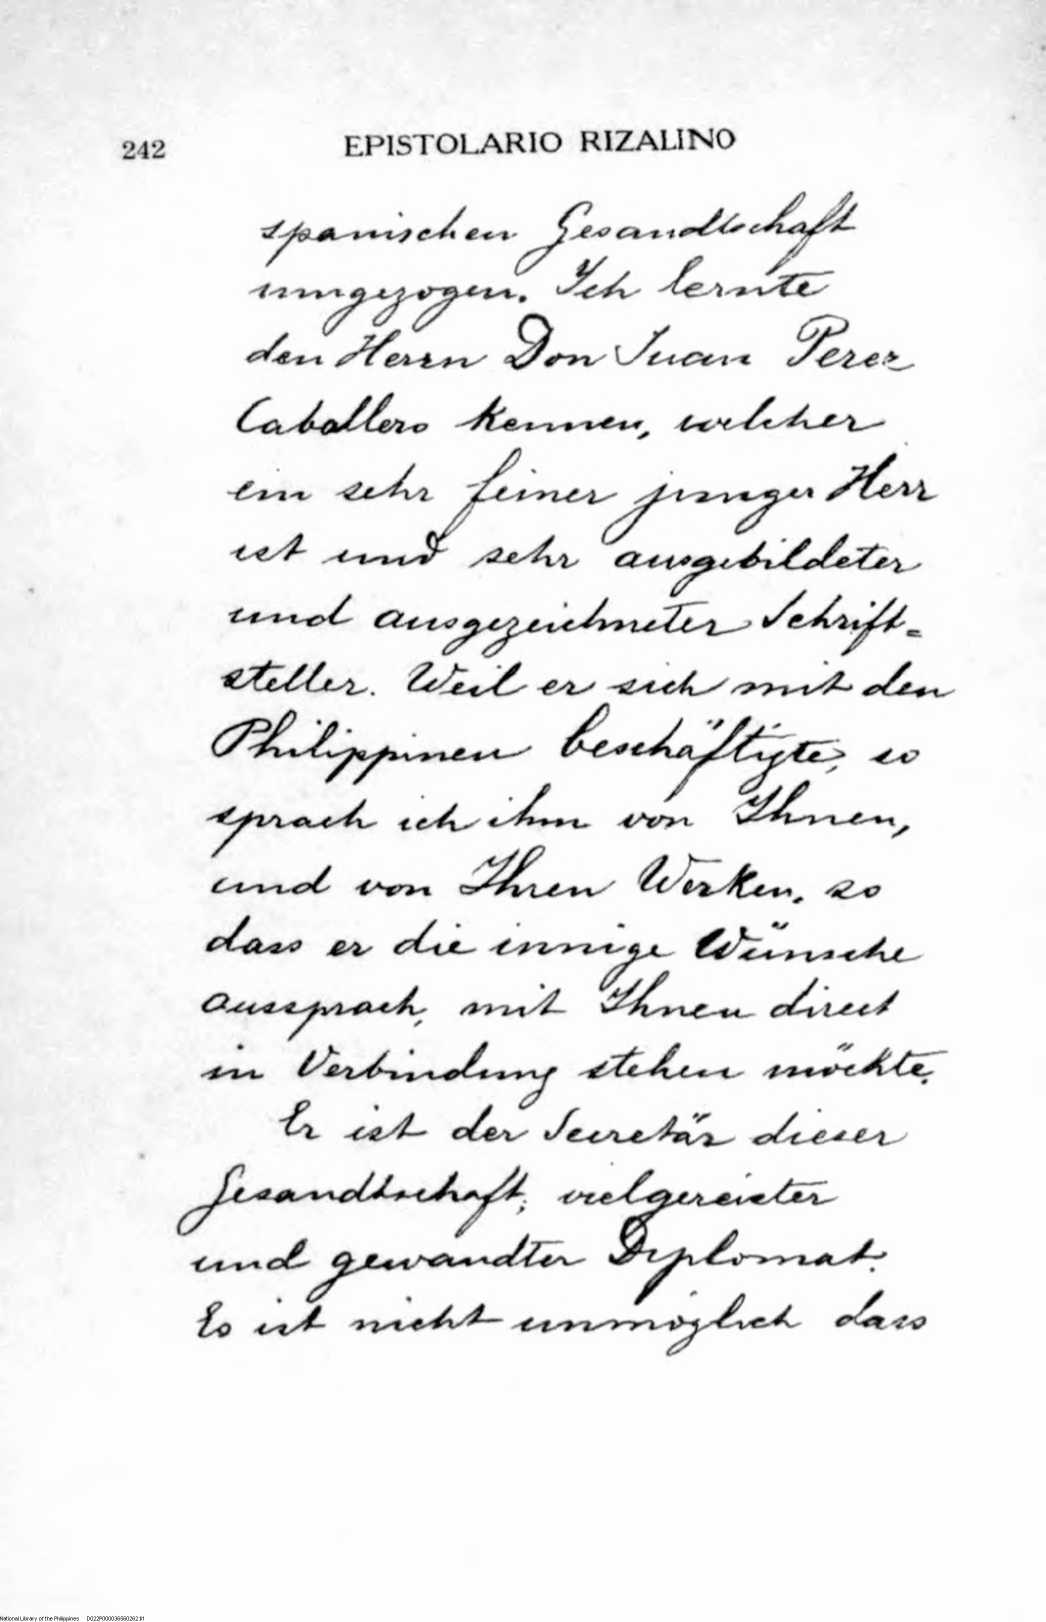 242 EPISTOLARIO RIZALINO
spanischen Gesandtschaft
umgezogen. Ich lernte
den Herrn Don Juan Perez
Caballero kennen, welcher
ein sehr feiner junger Herr
ist und sehr ausgebildeter
und ausgezeichneter Schrift=
steller. Weil er sich mit den
Philippinen beschäftigte, so
sprach ich ihm von Ihnen,
und von Ihren Werken, so
dass er die innige Wünsche
aussprach, mit Ihnen direct
in Verbindung stehen möchte.
Er ist der Secretär dieser
Gesandtschaft; vielgereister
und gewandter Diplomat.
Es ist nicht unmöglich dass
National Library of the Philippines